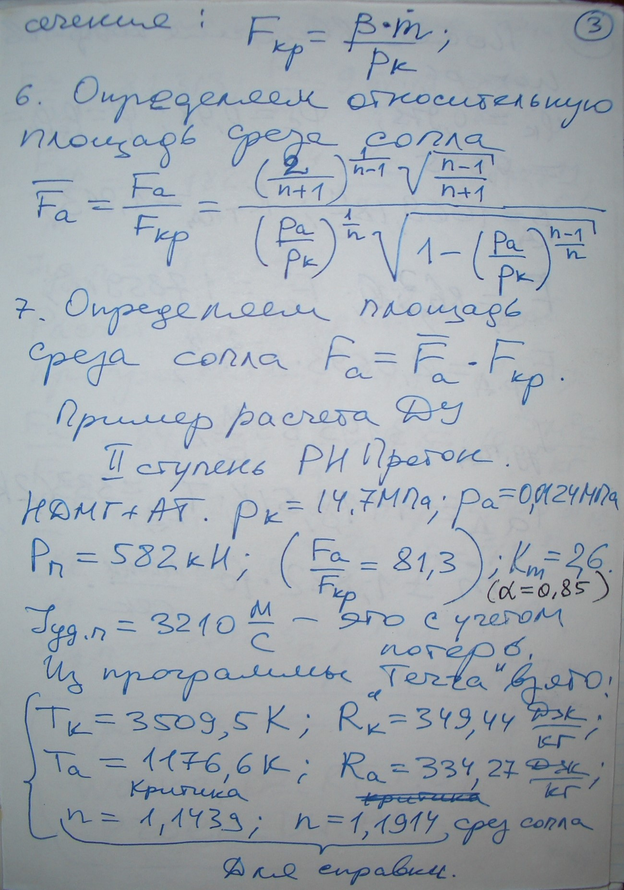 сечения: Fкр = β·ṁ / pк; ③
6. Определяем относительную
площадь среза сопла
F̅a = Fa/Fкр = (2/(n+1))^(1/(n-1)) √((n-1)/(n+1)) / ((pa/pк)^(1/n) √(1-(pa/pк)^((n-1)/n)))
7. Определяем площадь
среза сопла Fa = F̅a · Fкр.
Пример расчета ДУ
II ступень РН Протон.
НДМГ+АТ. pк = 14,7МПа; pa=0,0124МПа
Pп = 582кН; (Fa/Fкр = 81,3); Km = 2,6.
(α=0,85)
Jуд.п = 3210 м/с – это с учетом
потерь.
Из программы "Течка" взято:
Tк = 3509,5К; Rк = 349,44 Дж/кг;
Ta = 1176,6К; Ra = 334,27 Дж/кг;
критика критика
n = 1,1439; n = 1,1914, срез сопла
Для справки.